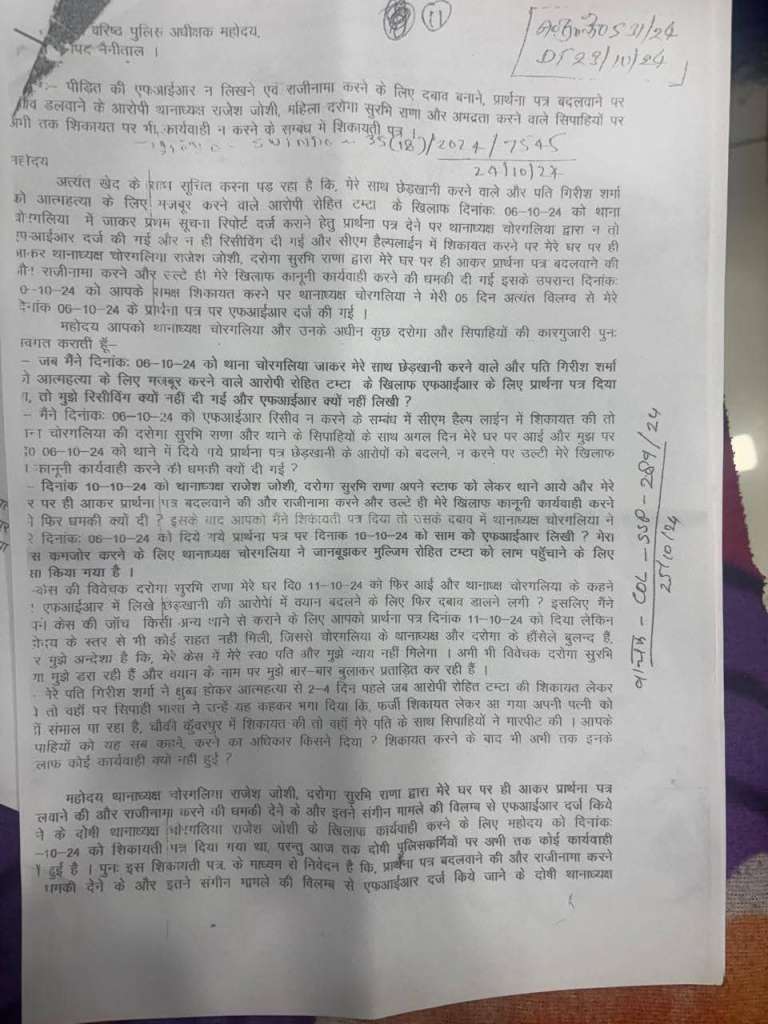 वरिष्ठ पुलिस अधीक्षक महोदय,
पद नैनीताल ।
11
531/24
DT 29/10/24
:- पीड़ित की एफआईआर न लिखने एवं राजीनामा करने के लिए दबाव बनाने, प्रार्थना पत्र बदलवाने पर
डलवाने के आरोपी थानाध्यक्ष राजेश जोशी, महिला दरोगा सुरभि राणा और अमद्रता करने वाले सिपाहियों पर
अभी तक शिकायत पर भी कार्यवाही न करने के सम्बंध में शिकायती पत्र ।
35(18)/2024/7545
24/10/24
महोदय
अत्यंत खेद के साथ सूचित करना पड़ रहा है कि, मेरे साथ छेड़खानी करने वाले और पति गिरीश शर्मा
को आत्महत्या के लिए मजबूर करने वाले आरोपी रोहित टम्टा के खिलाफ दिनांकः 06-10-24 को थाना
चोरगलिया में जाकर प्रथम सूचना रिपोर्ट दर्ज कराने हेतु प्रार्थना पत्र देने पर थानाध्यक्ष चोरगलिया द्वारा न तो
एफआईआर दर्ज की गई और न ही रिसीविंग दी गई और सीएम हैल्पलाईन में शिकायत करने पर मेरे घर पर ही
आकर थानाध्यक्ष चोरगलिया राजेश जोशी, दरोगा सुरभि राणा द्वारा मेरे घर पर ही आकर प्रार्थना पत्र बदलवाने की
और राजीनामा करने और उल्टे ही मेरे खिलाफ कानूनी कार्यवाही करने की धमकी दी गई इसके उपरान्त दिनांकः
0-10-24 को आपके समक्ष शिकायत करने पर थानाध्यक्ष चोरगलिया ने मेरी 05 दिन अत्यंत विलम्ब से मेरे
दिनांक 06-10-24 के प्रार्थना पत्र पर एफआईआर दर्ज की गई ।
महोदय आपको थानाध्यक्ष चोरगलिया और उनके अधीन कुछ दरोगा और सिपाहियों की कारगुजारी पुनः
अवगत कराती हूँ–
– जब मैंने दिनांकः 06-10-24 को थाना चोरगलिया जाकर मेरे साथ छेड़खानी करने वाले और पति गिरीश शर्मा
को आत्महत्या के लिए मजबूर करने वाले आरोपी रोहित टम्टा के खिलाफ एफआईआर के लिए प्रार्थना पत्र दिया
, तो मुझे रिसीविंग क्यों नहीं दी गई और एफआईआर क्यों नहीं लिखी ?
– मैंने दिनांकः 06-10-24 को एफआईआर रिसीव न करने के सम्बंध में सीएम हैल्प लाईन में शिकायत की तो
चोरगलिया की दरोगा सुरभि राणा और थाने के सिपाहियों के साथ अगल दिन मेरे घर पर आई और मुझ पर
06-10-24 को थाने में दिये गये प्रार्थना पत्र छेड़खानी के आरोपों को बदलने, न करने पर उल्टी मेरे खिलाफ
कानूनी कार्यवाही करने की धमकी क्यों दी गई ?
- दिनांक 10-10-24 को थानाध्यक्ष राजेश जोशी, दरोगा सुरभि राणा अपने स्टाफ को लेकर थाने आये और मेरे
र पर ही आकर प्रार्थना पत्र बदलवाने की और राजीनामा करने और उल्टे ही मेरे खिलाफ कानूनी कार्यवाही करने
फिर धमकी क्यों दी ? इसके बाद आपको मैंने शिकायती पत्र दिया तो उसके दबाव में थानाध्यक्ष चोरगलिया ने
दिनांकः 06-10-24 को दिये गये प्रार्थना पत्र पर दिनाक 10-10-24 को साम को एफआईआर लिखी ? मेरा
स कमजोर करने के लिए थानाध्यक्ष चोरगलिया ने जानबूझकर मुल्जिम रोहित टम्टा को लाभ पहुँचाने के लिए
सा किया गया है ।
केस की विवेचक दरोगा सुरभि राणा मेरे घर दि0 11-10-24 को फिर आई और थानाध्क्ष चोरगलिया के कहने
एफआईआर में लिखे छेड़खानी की आरोपों में वयान बदलने के लिए फिर दबाव डालने लगी ? इसलिए मैंने
केस की जाँच किसी अन्य थाने से कराने के लिए आपको प्रार्थना पत्र दिनांक 11-10-24 को दिया लेकिन
महोदय के स्तर से भी कोई राहत नही मिली, जिससे चोरगलिया के थानाध्यक्ष और दरोगा के हौंसेले बुलन्द हैं,
र मुझे अन्देशा है कि, मेरे केस में मेरे स्व0 पति और मुझे न्याय नहीं मिलेगा । अभी भी विवेचक दरोगा सुरभि
मुझे डरा रही हैं और वयान के नाम पर मुझे बार-बार बुलाकर प्रताड़ित कर रही हैं ।
मेरे पति गिरीश शर्मा ने क्षुब्ध होकर आत्महत्या से 2–4 दिन पहले जब आरोपी रोहित टम्टा की शिकायत लेकर
तो वहाँ पर सिपाही भारत ने उन्हें यह कहकर भगा दिया कि, फर्जी शिकायत लेकर आ गया अपनी पत्नी को
संभाल पा रहा है, चौकी कुँवरपुर में शिकायत की तो वहाँ मेरे पति के साथ सिपाहियों ने मारपीट की । आपके
पाहियों को यह सब कहने, करने का अधिकार किसने दिया ? शिकायत करने के बाद भी अभी तक इनके
लाफ कोई कार्यवाही क्यों नही हुई ?
वाचक – COL – SSP – 289/24
25/10/24
महोदय थानाध्यक्ष चोरगलिया राजेश जोशी, दरोगा सुरभि राणा द्वारा मेरे घर पर ही आकर प्रार्थना पत्र
लवाने की और राजीनामा करने की धमकी देने के और इतने संगीन मामले की विलम्ब से एफआईआर दर्ज किये
ने के दोषी थानाध्यक्ष चोरगलिया राजेश जोशी के खिलाफ कार्यवाही करने के लिए महोदय को दिनांकः
-10-24 को शिकायती पत्र दिया गया था, परन्तु आज तक दोषी पुलिसकर्मियों पर अभी तक कोई कार्यवाही
हुई है । पुनः इस शिकायती पत्र के माध्यम से निवेदन है कि, प्रार्थना पत्र बदलवाने की और राजीनामा करने
धमकी देने के और इतने संगीन मामले की विलम्ब से एफआईआर दर्ज किये जाने के दोषी थानाध्यक्ष